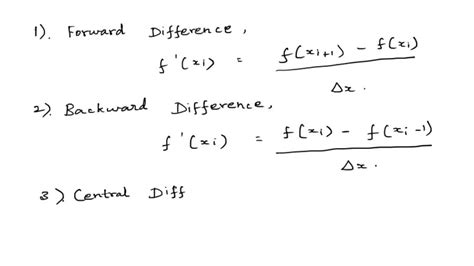 1). Forward Difference,
f'(xi) = f(xi+1) - f(xi) / Δx.
2). Backward Difference,
f'(xi) = f(xi) - f(xi-1) / Δx.
3). Central Diff